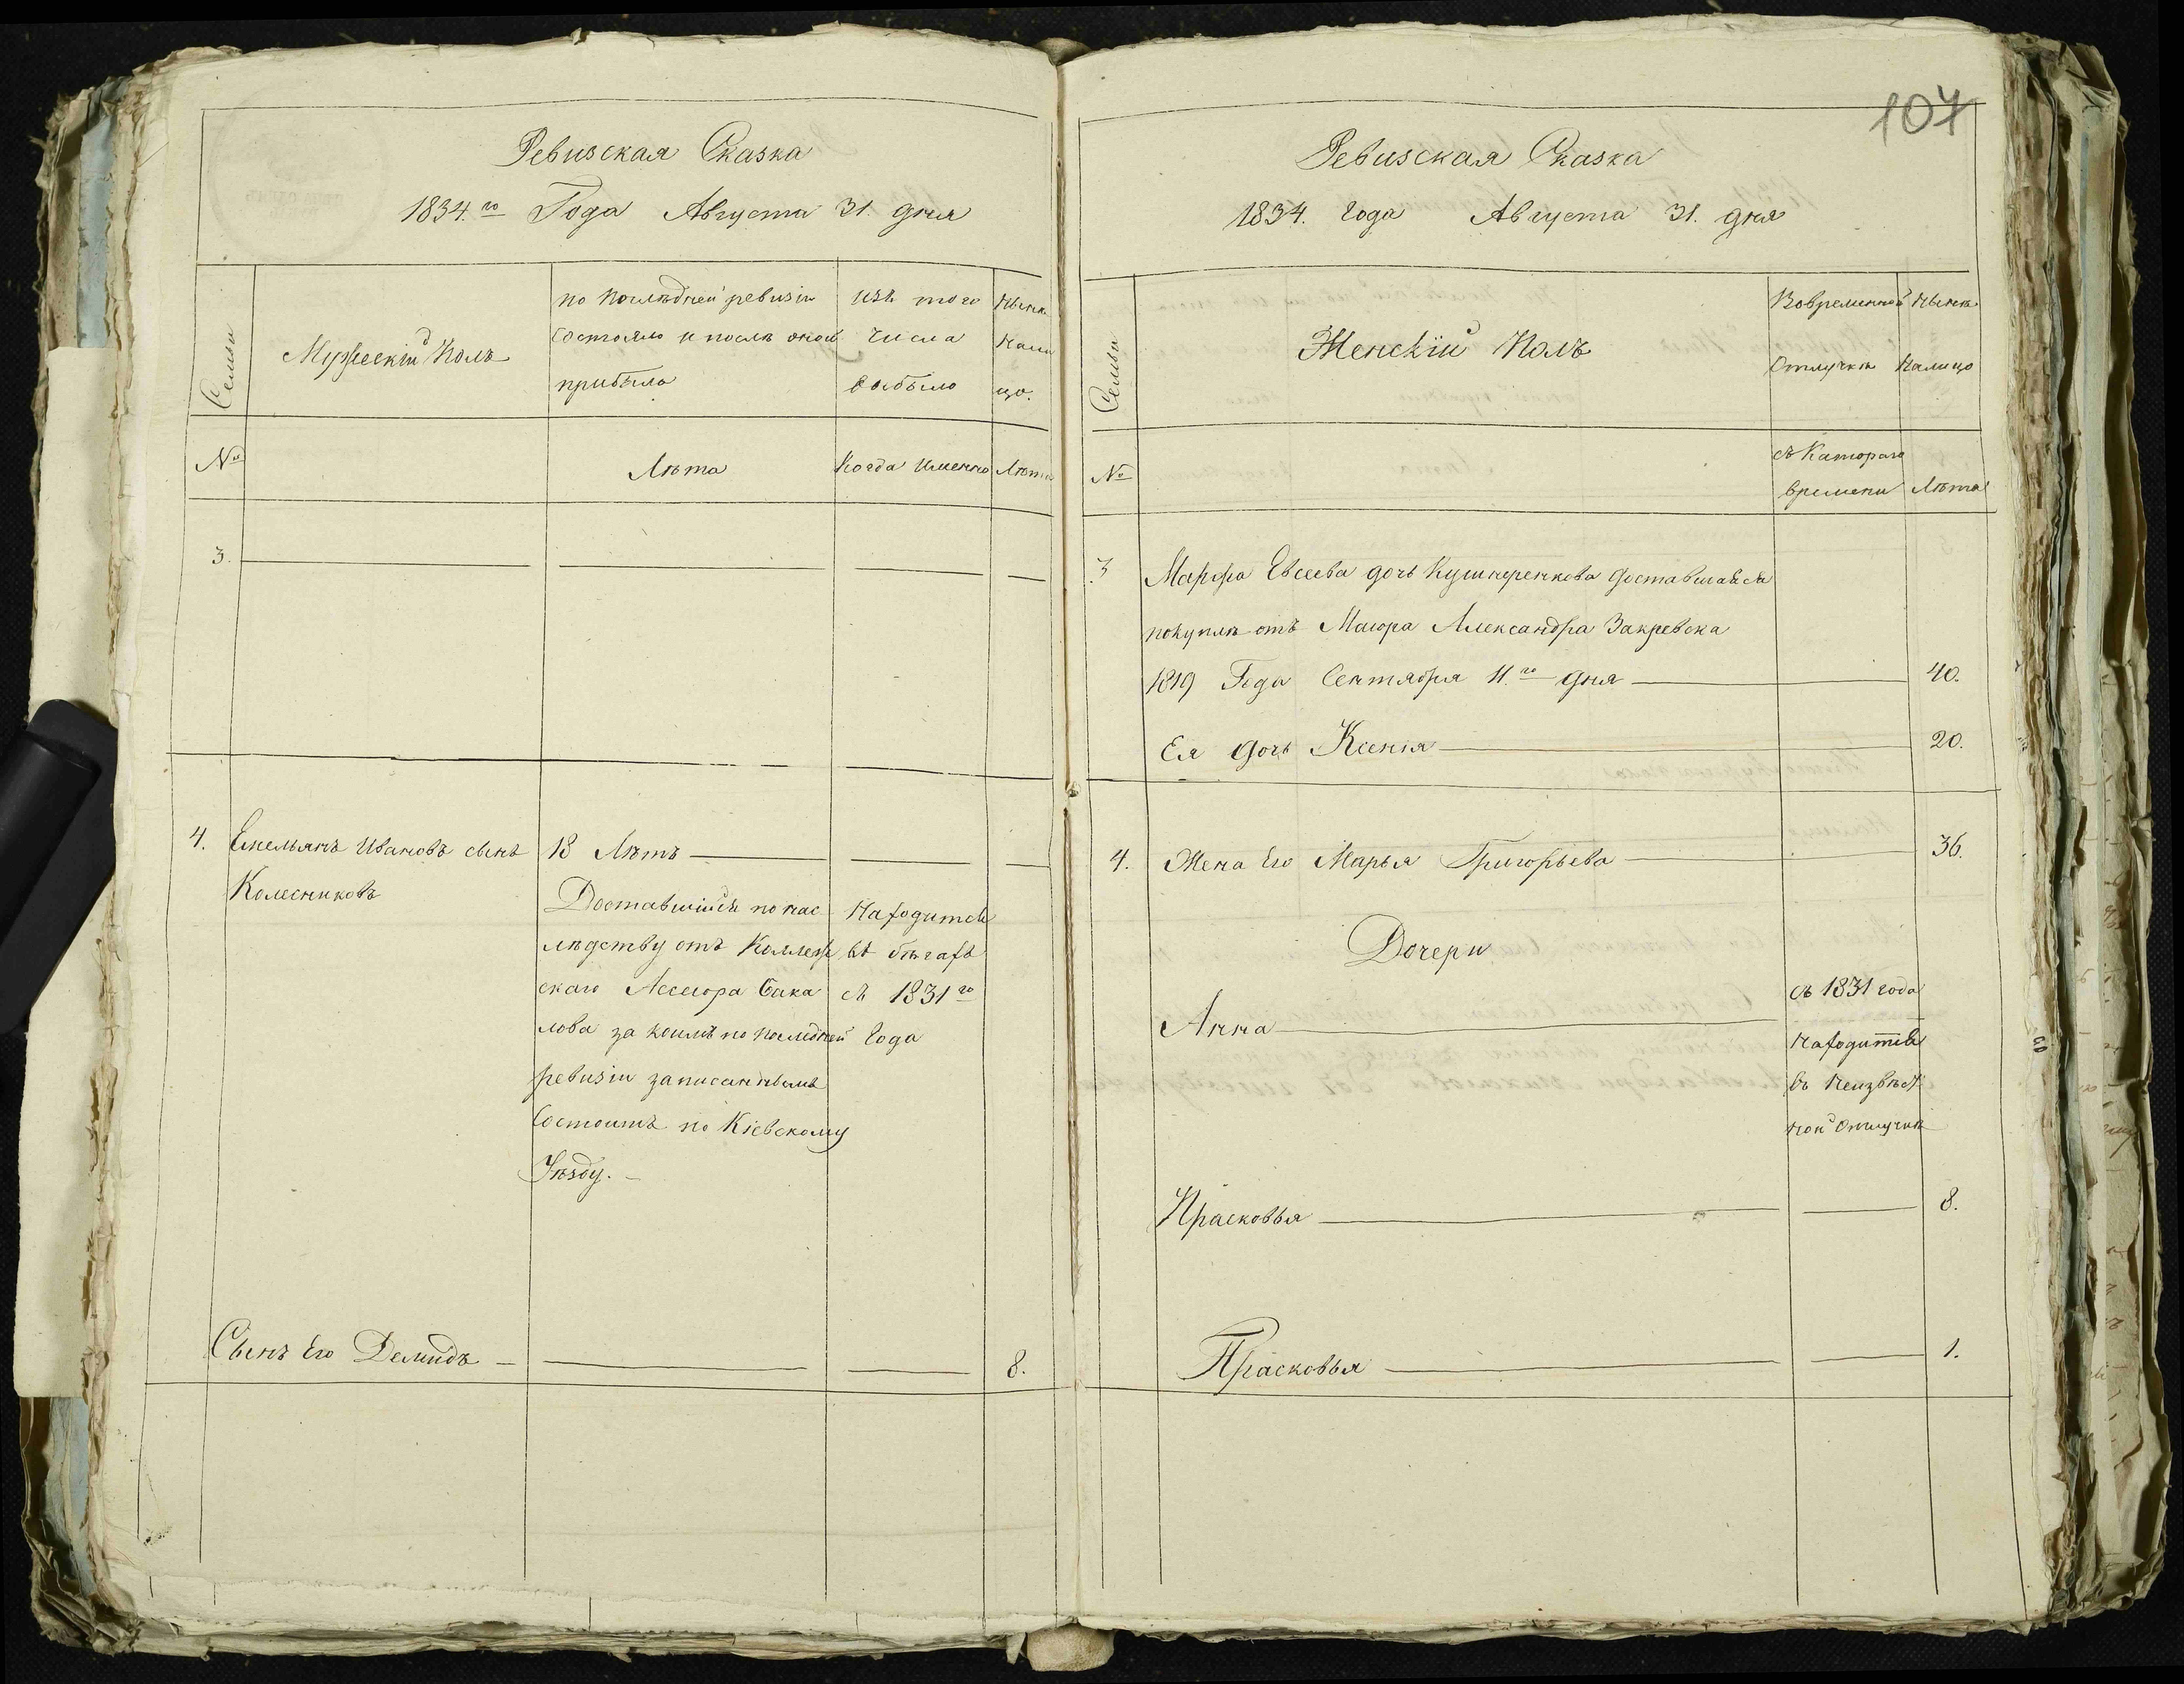 Ревизская Сказка
1834.го Года Августа 31. дня
Семьи
Мужескій Полъ
по последней ревизіи
состояло и после оной
прибыло
изъ того
числа
выбыло
ныне
нали
цо.
№
Лѣта
Когда именно
Лѣта
3.
4.
Емельянъ Ивановъ сынъ
Колесниковъ
18 Лѣтъ
Доставшійся по нас
лѣдству отъ Коллеж
скаго Ассесора Бака
лова за коимъ по последней
ревизіи записаннымъ
Состоитъ по Кіевскому
Уѣзду.
Находится
въ бѣгахъ
съ 1831го
Года
Сынъ Его Демидъ
8.
107
Ревизская Сказка
1834. года Августа 31. дня
Семьи
Женскій Полъ
Вовременной
Отлучкѣ
Ныне
Налицо
№
съ Катораго
времени
Лѣта
3
Марфа Евсеева дочь Кушнеренкова доставшаяся
покупкѣ отъ Маіора Александра Закревска
1819 Года Сентября 11.го дня
40.
Ея дочь Ксенія
20.
4.
Жена Его Марья Григорьева
36.
Дочери
Анна
съ 1831 года
находится
въ неизвѣст
ной отлучкѣ
Прасковья
8.
Прасковья
1.